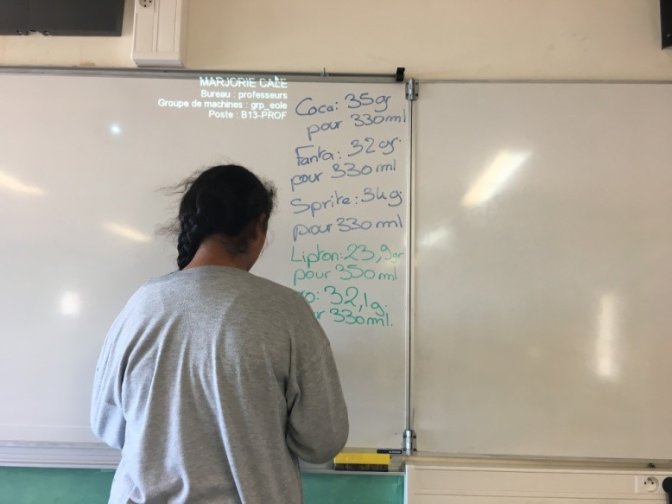 MARJORIE CALE
Bureau : professeurs
Groupe de machines : grp_eole
Poste : B13-PROF
Coca: 35gr
pour 330ml
Fanta: 32gr.
pour 330ml
Sprite: 34g.
pour 330ml
Lipton: 23,9gr
pour 350ml
32,1g.
330ml.